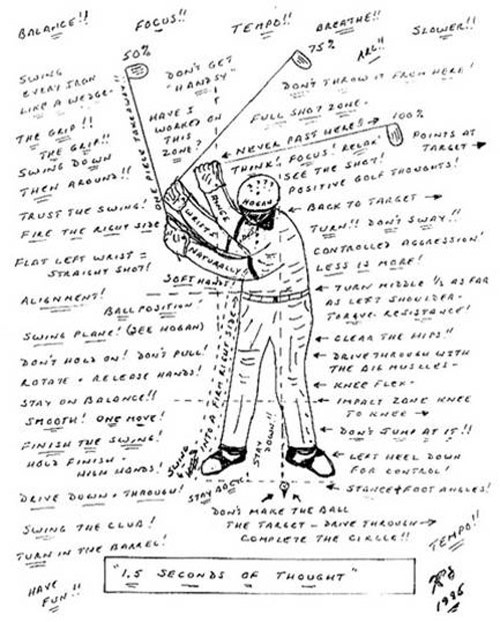 BALANCE!!
FOCUS!!
TEMPO!!
BREATHE!!
SLOWER!!
50%
75%
ARG!!
SWING
EVERY IRON
LIKE A WEDGE-
DON'T GET
"HANDSY"
DON'T THROW IT FROM HERE!
THE GRIP!!
THE GRIP!!
SWING DOWN
THEN AROUND!!
ONE PIECE TAKEAWAY!!
HAVE I
WORKED ON
THIS
ZONE?
FULL SHOT ZONE-
100%
NEVER PAST HERE!!
POINTS AT
TARGET
THINK! FOCUS! RELAX!
SEE THE SHOT!
POSITIVE GOLF THOUGHTS!
HOGAN
TRUST THE SWING!
FIRE THE RIGHT SIDE
WRISTS
HINGE
NATURALLY!!
BACK TO TARGET
TURN!! DON'T SWAY!!
CONTROLLED AGGRESSION!
LESS IS MORE!
FLAT LEFT WRIST =
STRAIGHT SHOT!
SOFT HANDS!
ALIGNMENT!
BALL POSITION!
TURN MIDDLE 1/2 AS FAR
AS LEFT SHOULDER-
TORQUE. RESISTANCE!
SWING PLANE! (SEE HOGAN)
CLEAR THE HIPS!!
DON'T HOLD ON! DON'T PULL!
ROTATE + RELEASE HANDS!
DRIVE THROUGH WITH
THE BIG MUSCLES-
KNEE FLEX-
STAY ON BALANCE!!
IMPACT ZONE KNEE
TO KNEE
SMOOTH! ONE MOVE!
DON'T JUMP AT IT!!
FINISH THE SWING!
HOLD FINISH-
HIGH HANDS!
SWING
HARD
INTO A FIRM RIGHT SIDE
STAY
DOWN!!
LEFT HEEL DOWN
FOR CONTROL!
DRIVE DOWN + THROUGH!
STAY BACK
STANCE + FOOT ANGLES!
DON'T MAKE THE BALL
THE TARGET - DRIVE THROUGH
COMPLETE THE CIRCLE!!
SWING THE CLUB!
TURN IN THE BARREL!
TEMPO!!
"1.5 SECONDS OF THOUGHT"
HAVE
FUN!!
1995